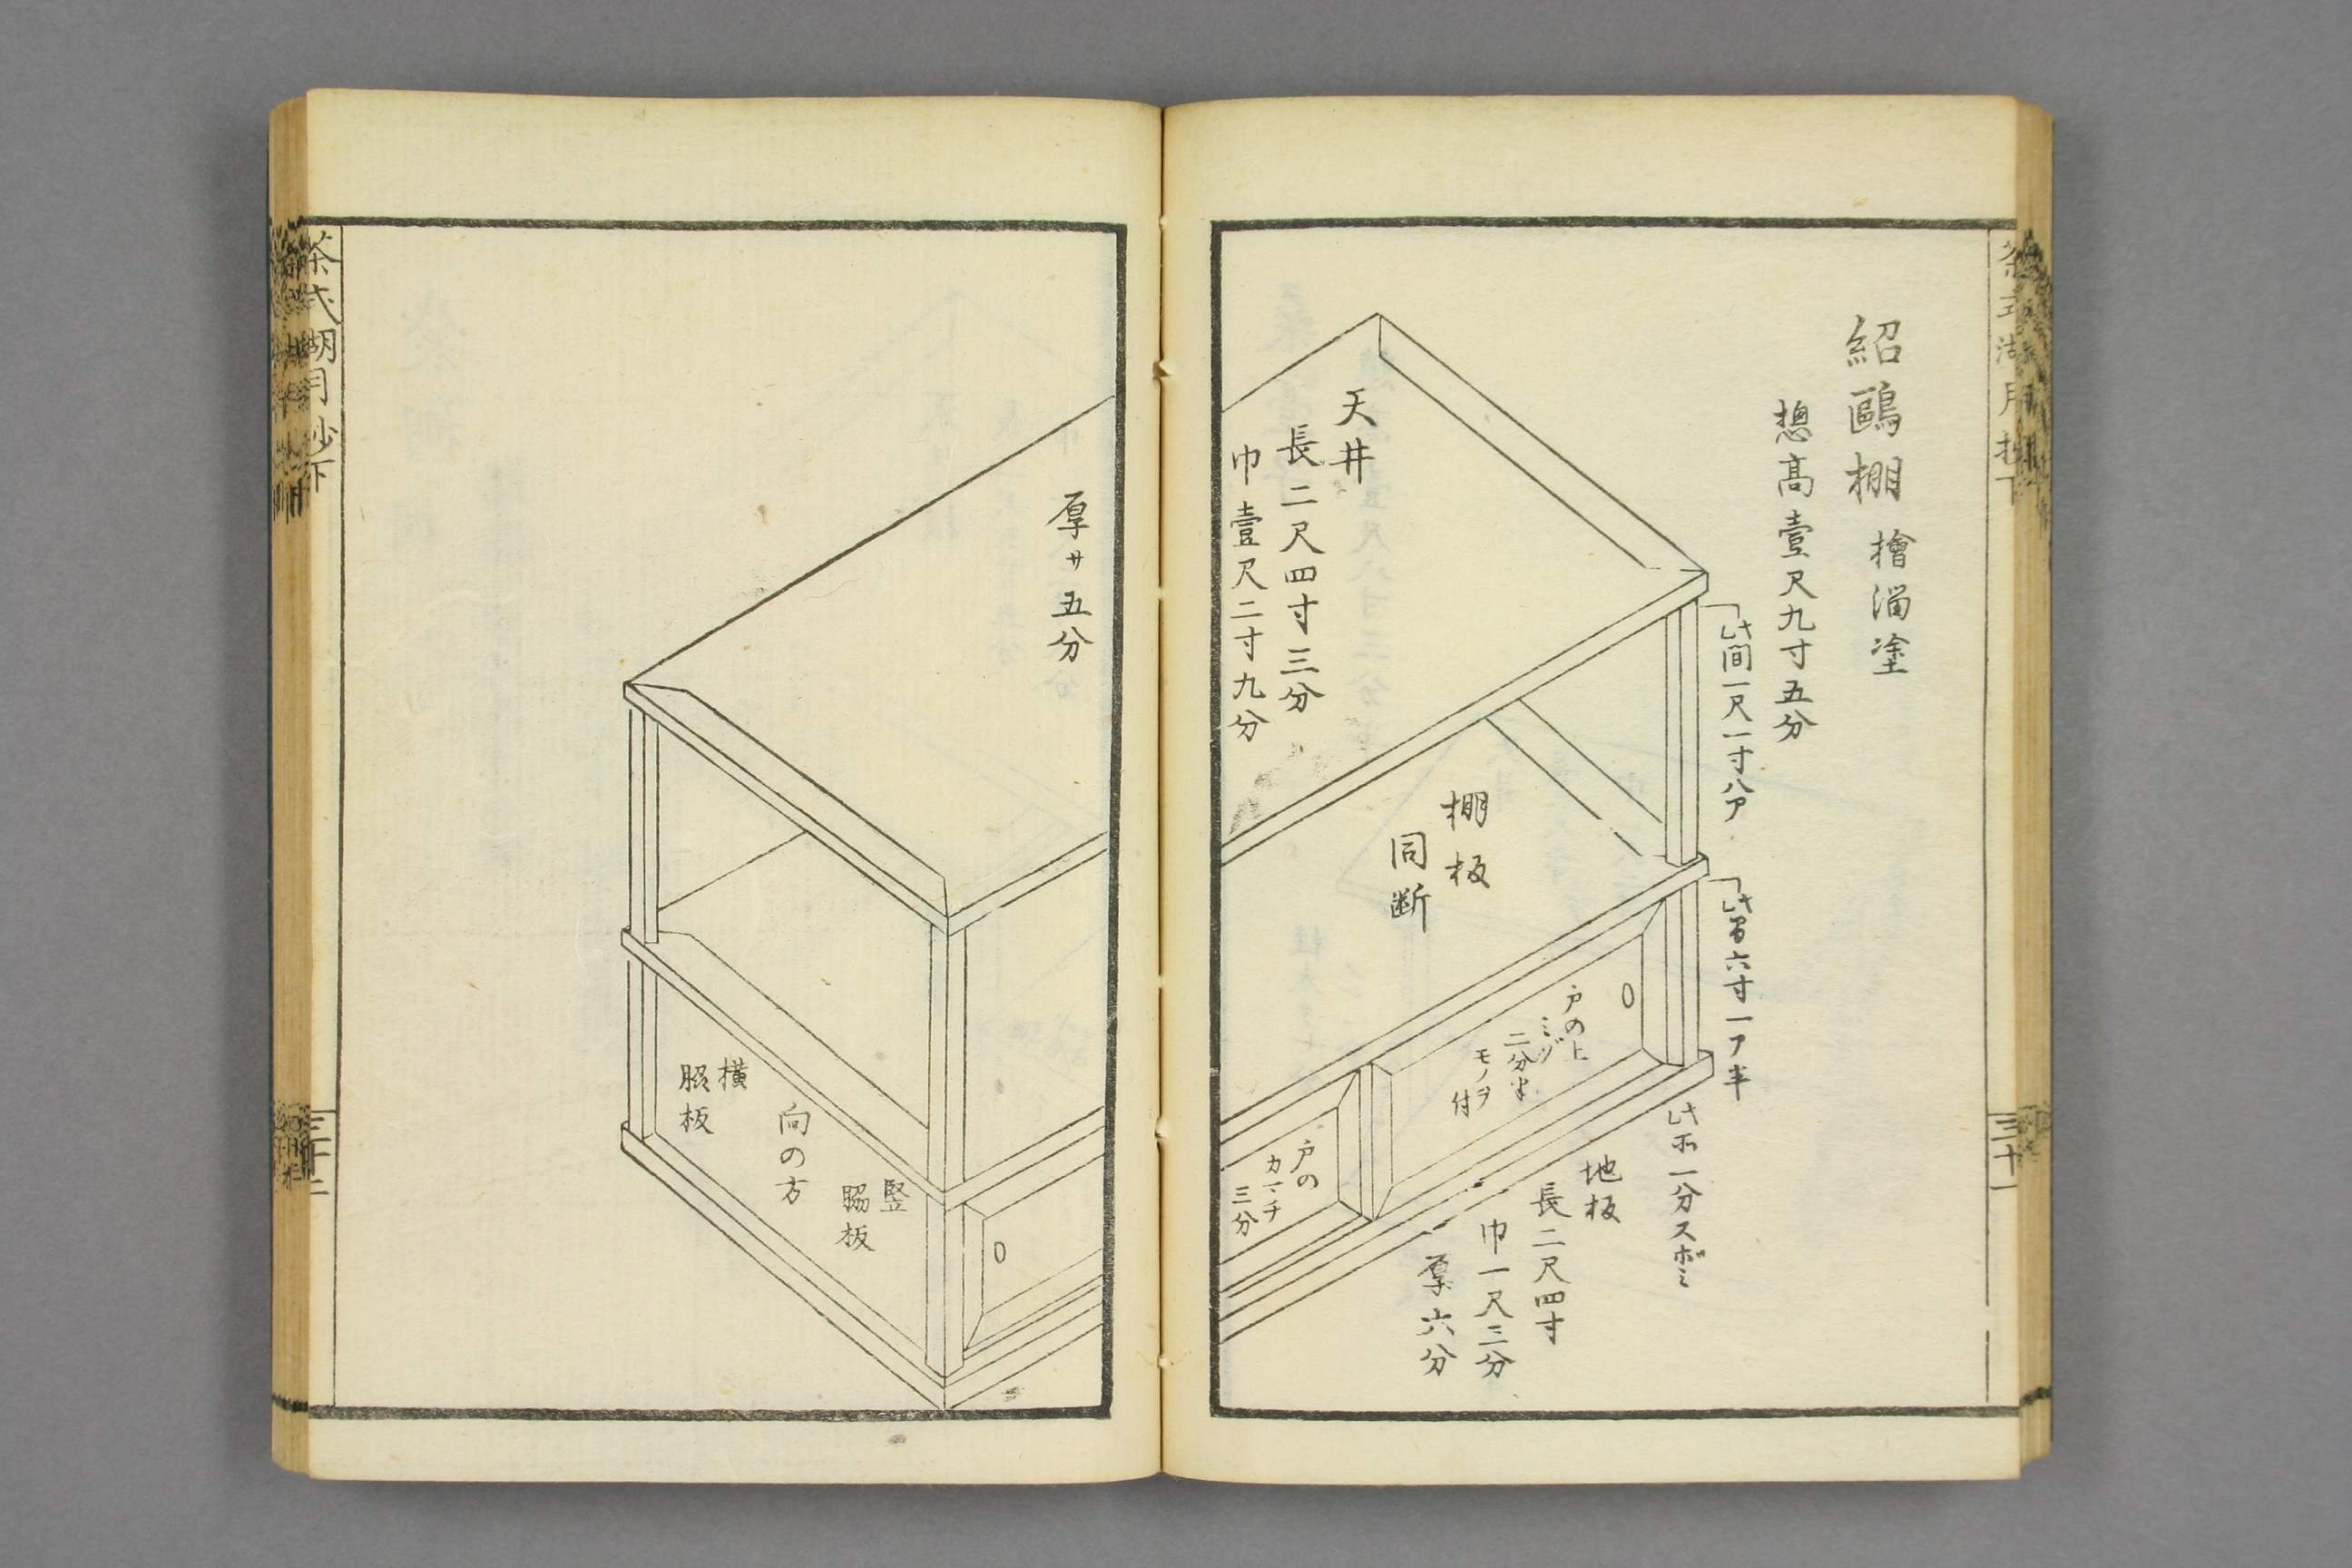 紹鷗棚 檜溜塗
惣高壹尺九寸五分
此間一尺一寸八ア
六寸一ア半
天井
長二尺四寸三分
巾壹尺二寸九分
棚板
同断
戸の上
ミゾ
二分半
モノヲ
付
戸の
カマチ
三分
一分スボミ
地板
長二尺四寸
巾一尺三分
厚六分
三十一
厚サ五分
横
脇板
向の方
竪
脇板
茶式湖月抄下